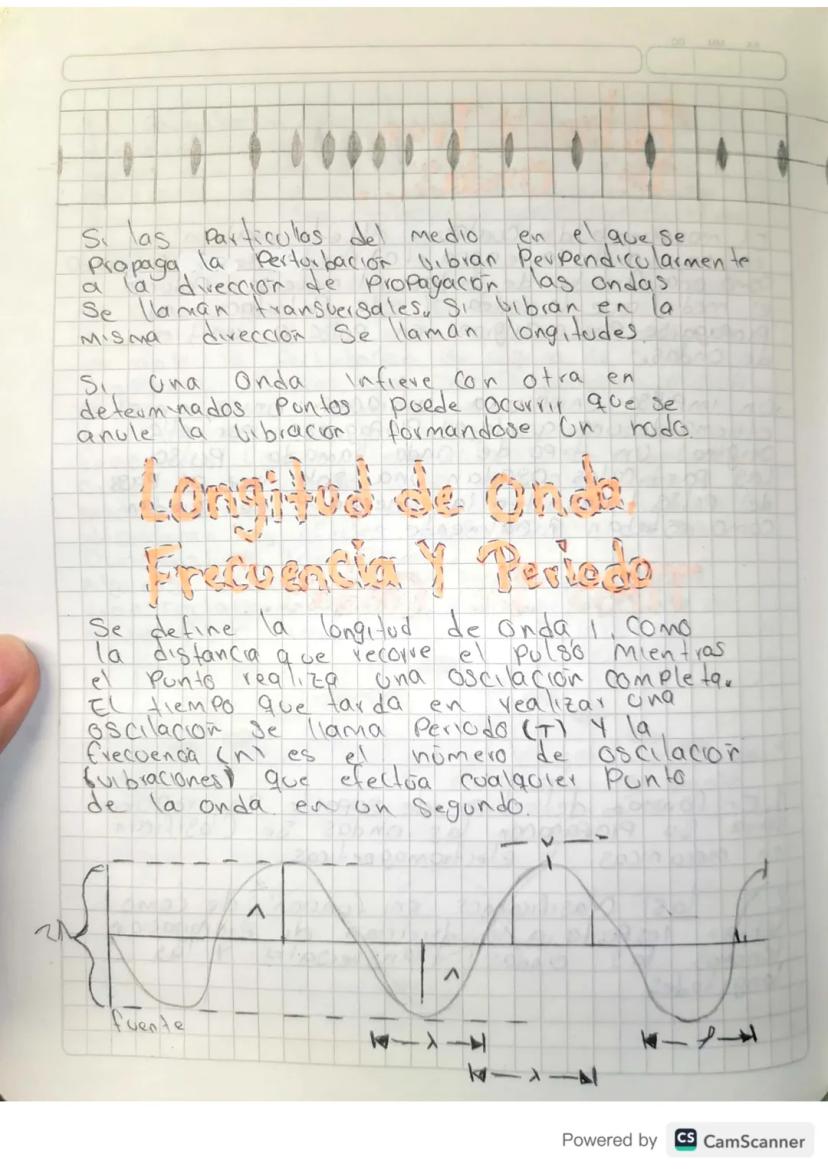 Si las Particulas del medio en el que se
Propaga la Perturbacion vibran Perpendicularmente
a la dirección de Propagación las ondas
Se llaman transversales. Si vibran en la
misma dirección Se llaman longitudes.
Si una Onda infiere con otra en
determinados Puntos Puede Ocurrir que se
anule la vibracion formandose Un nodo.
Longitud de Onda.
Frecuencia Y Periodo
Se define la longitud de onda l, como
la distancia que recorre el Pulso mientras
el Punto realiza una oscilación completa.
El tiempo que tarda en realizar una
oscilación Se llama Periodo (T) Y la
frecuencia (n) es el número de oscilacior
(vibraciones) que efectúa cualquier Punto
de la onda en un Segundo.
v
fuente
λ
λ
Powered by CS CamScanner